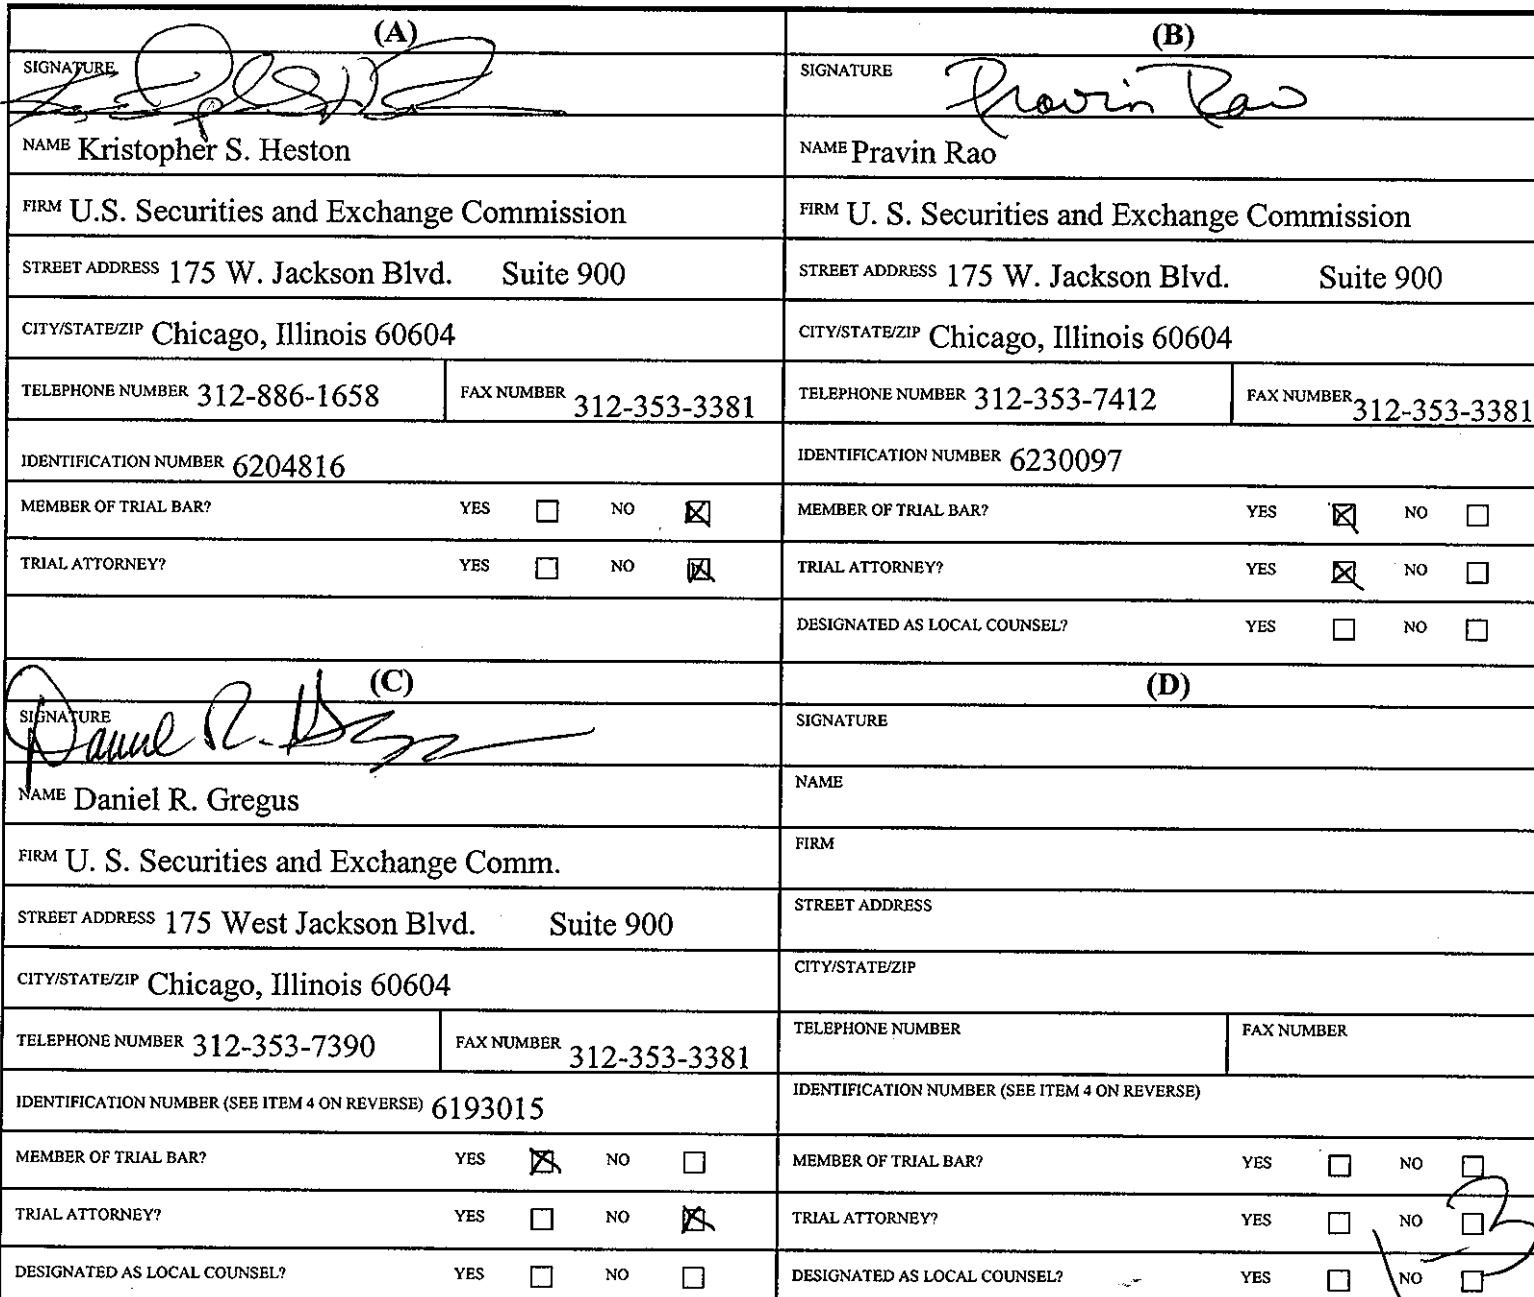 (A)
SIGNATURE
NAME Kristopher S. Heston
FIRM U.S. Securities and Exchange Commission
STREET ADDRESS 175 W. Jackson Blvd. Suite 900
CITY/STATE/ZIP Chicago, Illinois 60604
TELEPHONE NUMBER 312-886-1658 FAX NUMBER 312-353-3381
IDENTIFICATION NUMBER 6204816
MEMBER OF TRIAL BAR? YES ☐ NO ☒
TRIAL ATTORNEY? YES ☐ NO ☒
(B)
SIGNATURE Pravin Rao
NAME Pravin Rao
FIRM U. S. Securities and Exchange Commission
STREET ADDRESS 175 W. Jackson Blvd. Suite 900
CITY/STATE/ZIP Chicago, Illinois 60604
TELEPHONE NUMBER 312-353-7412 FAX NUMBER 312-353-3381
IDENTIFICATION NUMBER 6230097
MEMBER OF TRIAL BAR? YES ☒ NO ☐
TRIAL ATTORNEY? YES ☒ NO ☐
DESIGNATED AS LOCAL COUNSEL? YES ☐ NO ☐
(C)
SIGNATURE Daniel R.
NAME Daniel R. Gregus
FIRM U. S. Securities and Exchange Comm.
STREET ADDRESS 175 West Jackson Blvd. Suite 900
CITY/STATE/ZIP Chicago, Illinois 60604
TELEPHONE NUMBER 312-353-7390 FAX NUMBER 312-353-3381
IDENTIFICATION NUMBER (SEE ITEM 4 ON REVERSE) 6193015
MEMBER OF TRIAL BAR? YES ☒ NO ☐
TRIAL ATTORNEY? YES ☐ NO ☒
DESIGNATED AS LOCAL COUNSEL? YES ☐ NO ☐
(D)
SIGNATURE
NAME
FIRM
STREET ADDRESS
CITY/STATE/ZIP
TELEPHONE NUMBER FAX NUMBER
IDENTIFICATION NUMBER (SEE ITEM 4 ON REVERSE)
MEMBER OF TRIAL BAR? YES ☐ NO ☐
TRIAL ATTORNEY? YES ☐ NO ☐
DESIGNATED AS LOCAL COUNSEL? YES ☐ NO ☐
1-3